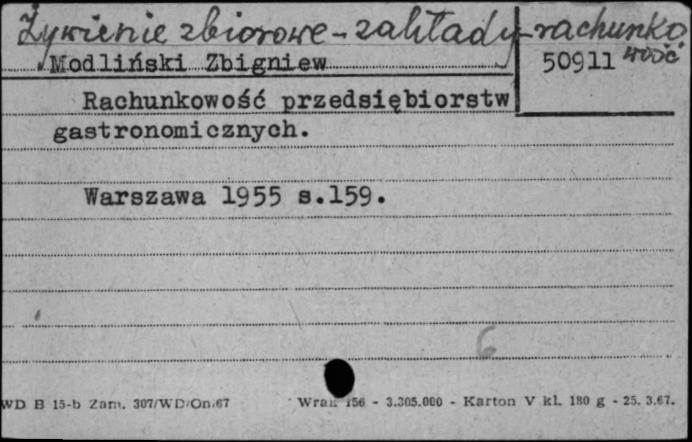 Żywienie zbiorowe - zakłady - rachunkowość
Modliński Zbigniew
50911
Rachunkowość przedsiębiorstw
gastronomicznych.
Warszawa 1955 s.159.
6
WD B 15-b Zam. 307/WD/On/67 156 - 3.305.000 - Karton V kl. 180 g - 25. 3.67.